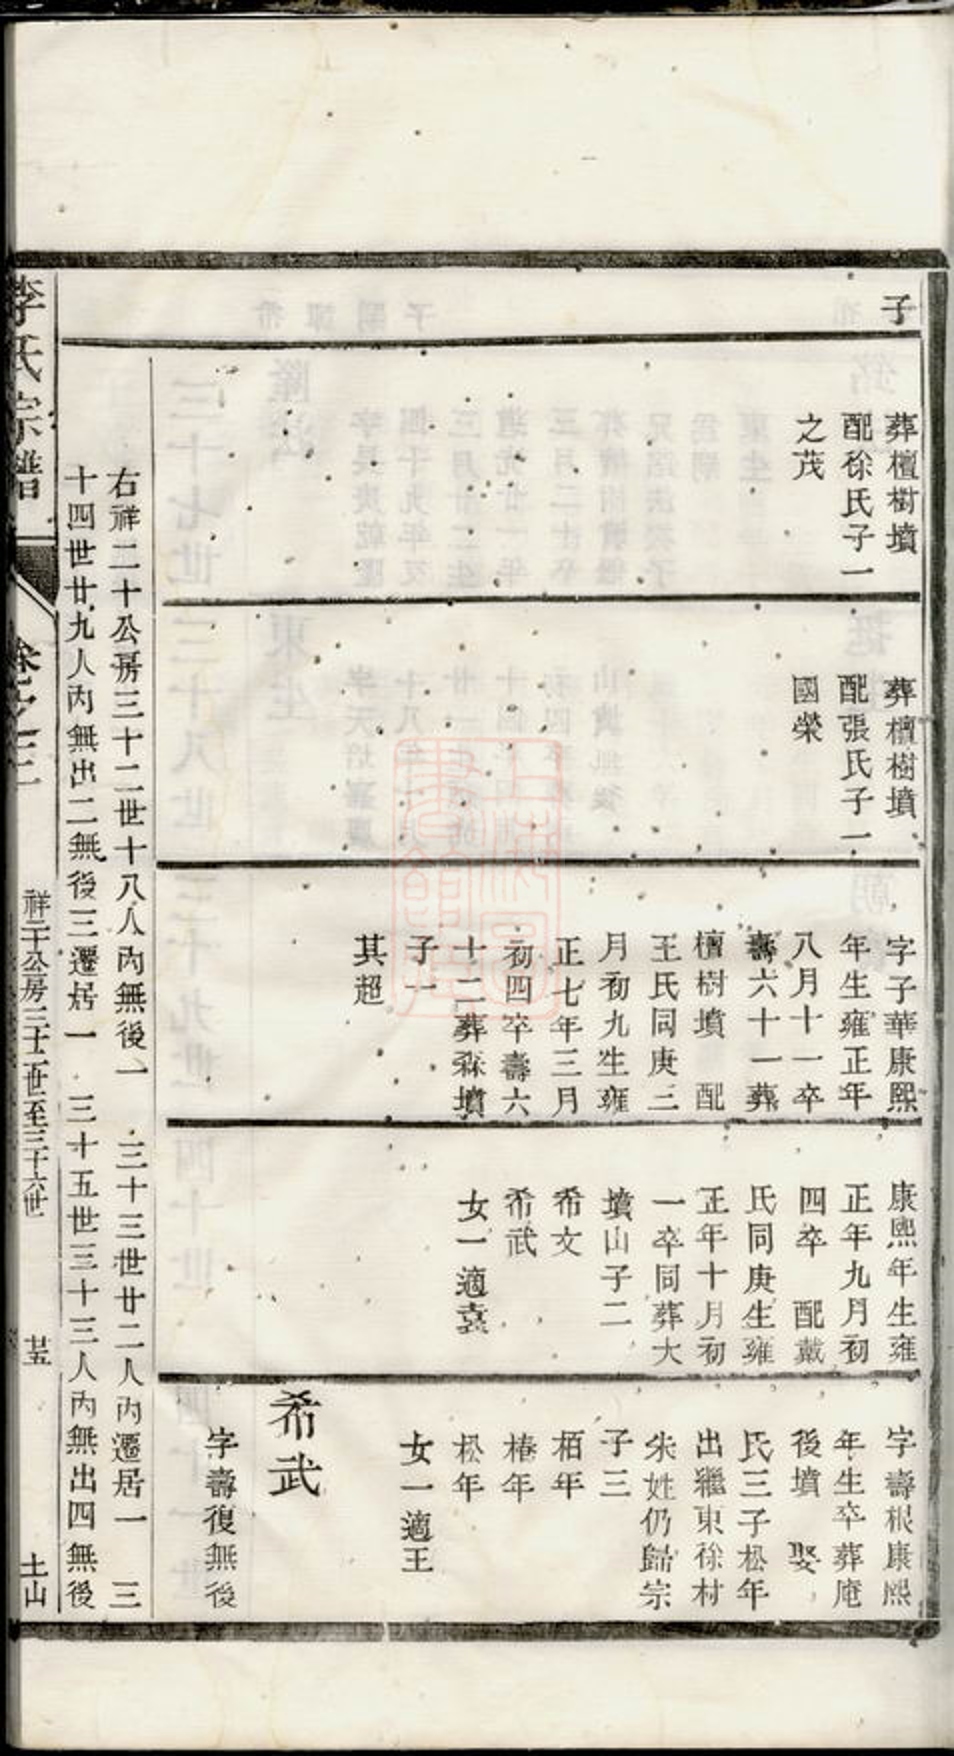 子
葬檀樹墳
配徐氏子一
之茂
葬檀樹墳
配張氏子一
國榮
字子華康熙
年生雍正年
八月十一卒
壽六十一葬
檀樹墳　配
王氏同庚三
月初九生雍
正七年三月
初四卒壽六
十二葬森墳
子一
其超
康熙年生雍
正年九月初
四卒　配戴
氏同庚生雍
正年十月初
一卒同葬大
墳山子二
希文
希武
女一適袁
字壽根康熙
年生卒葬庵
後墳　娶
氏三子松年
出繼東徐村
朱姓仍歸宗
子三
栢年
椿年
松年
女一適王
希武
字壽復無後
右祥二十公房三十二世十八人內無後一　三十三世廿二人內遷居一　三
十四世廿九人內無出二無後三遷居一　三十五世三十三人內無出四無後
李氏宗譜
卷之三
祥二十公房三十二世至三十六世
廿五
土山